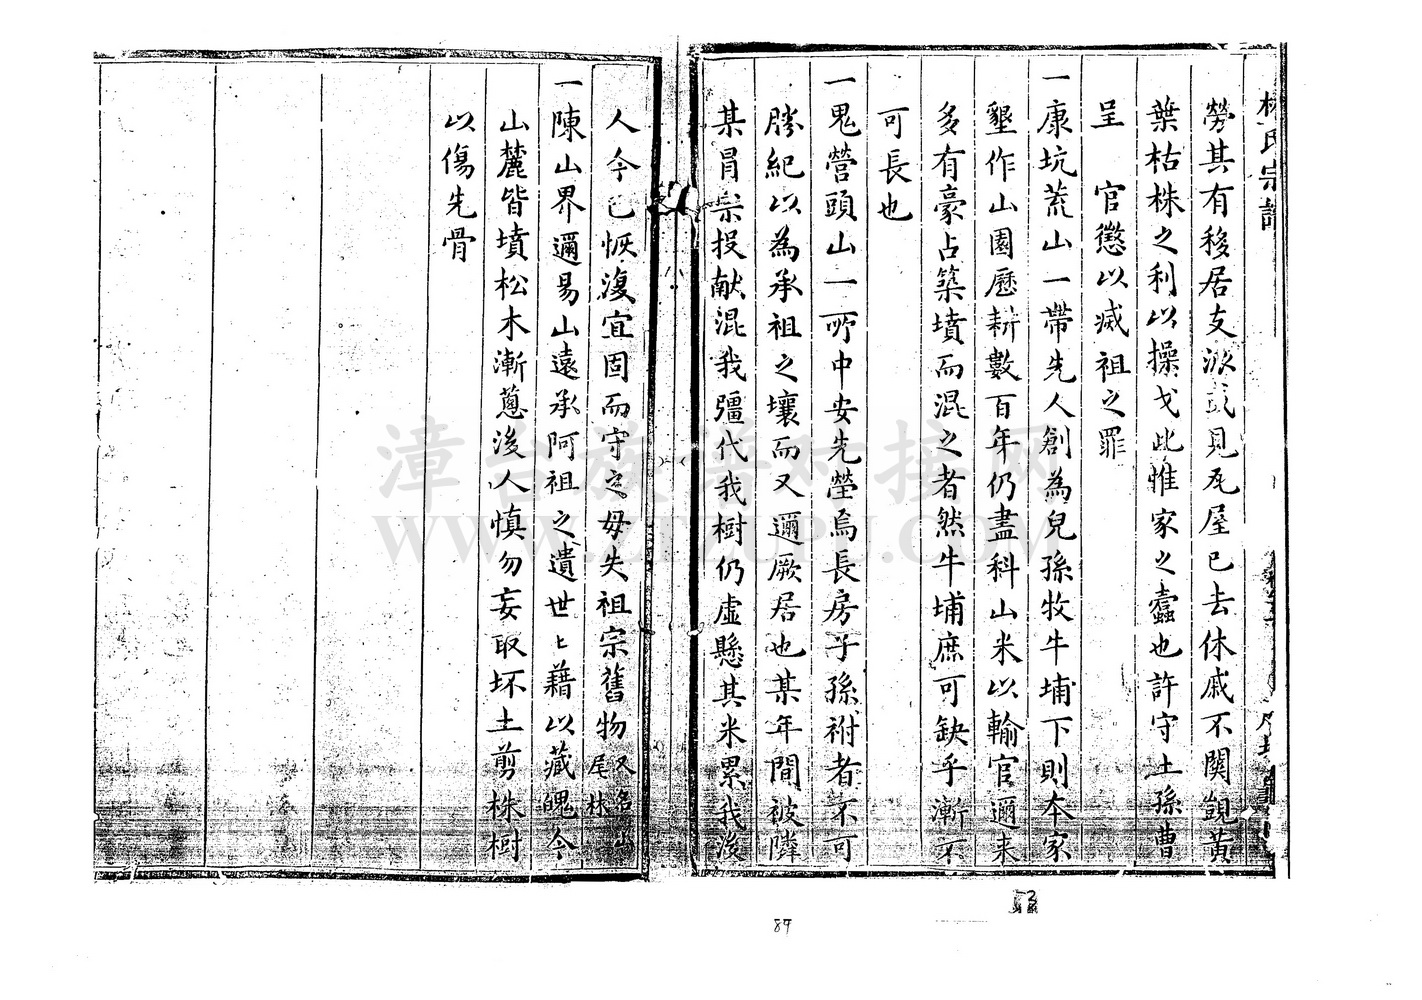 林氏宗譜
勞其有移居支派或見瓦屋已去休戚不關覬黄
葉枯株之利以操戈此惟家之蠹也許守土孫曹
呈　官懲以滅祖之罪
一康坑荒山一帶先人創為兒孫牧牛埔下則本家
墾作山園歷耕數百年仍盡科山米以輸官邇来
多有豪占築墳而混之者然牛埔庶可缺乎漸不
可長也
一鬼營頭山一所中安先塋為長房子孫祔者不可
勝紀以為承祖之壤而又邇厥居也某年間被隣
某冒宗投献混我彊代我樹仍虛懸其米累我後
人今已恢復宜固而守之毋失祖宗舊物又名山
尾林
一陳山界邇易山遠承阿祖之遺世〻藉以藏魄今
山麓皆墳松木漸蔥後人慎勿妄取坏土剪株樹
以傷先骨
漳台族谱对接网
WWW.ZTZUPU.COM
52
89